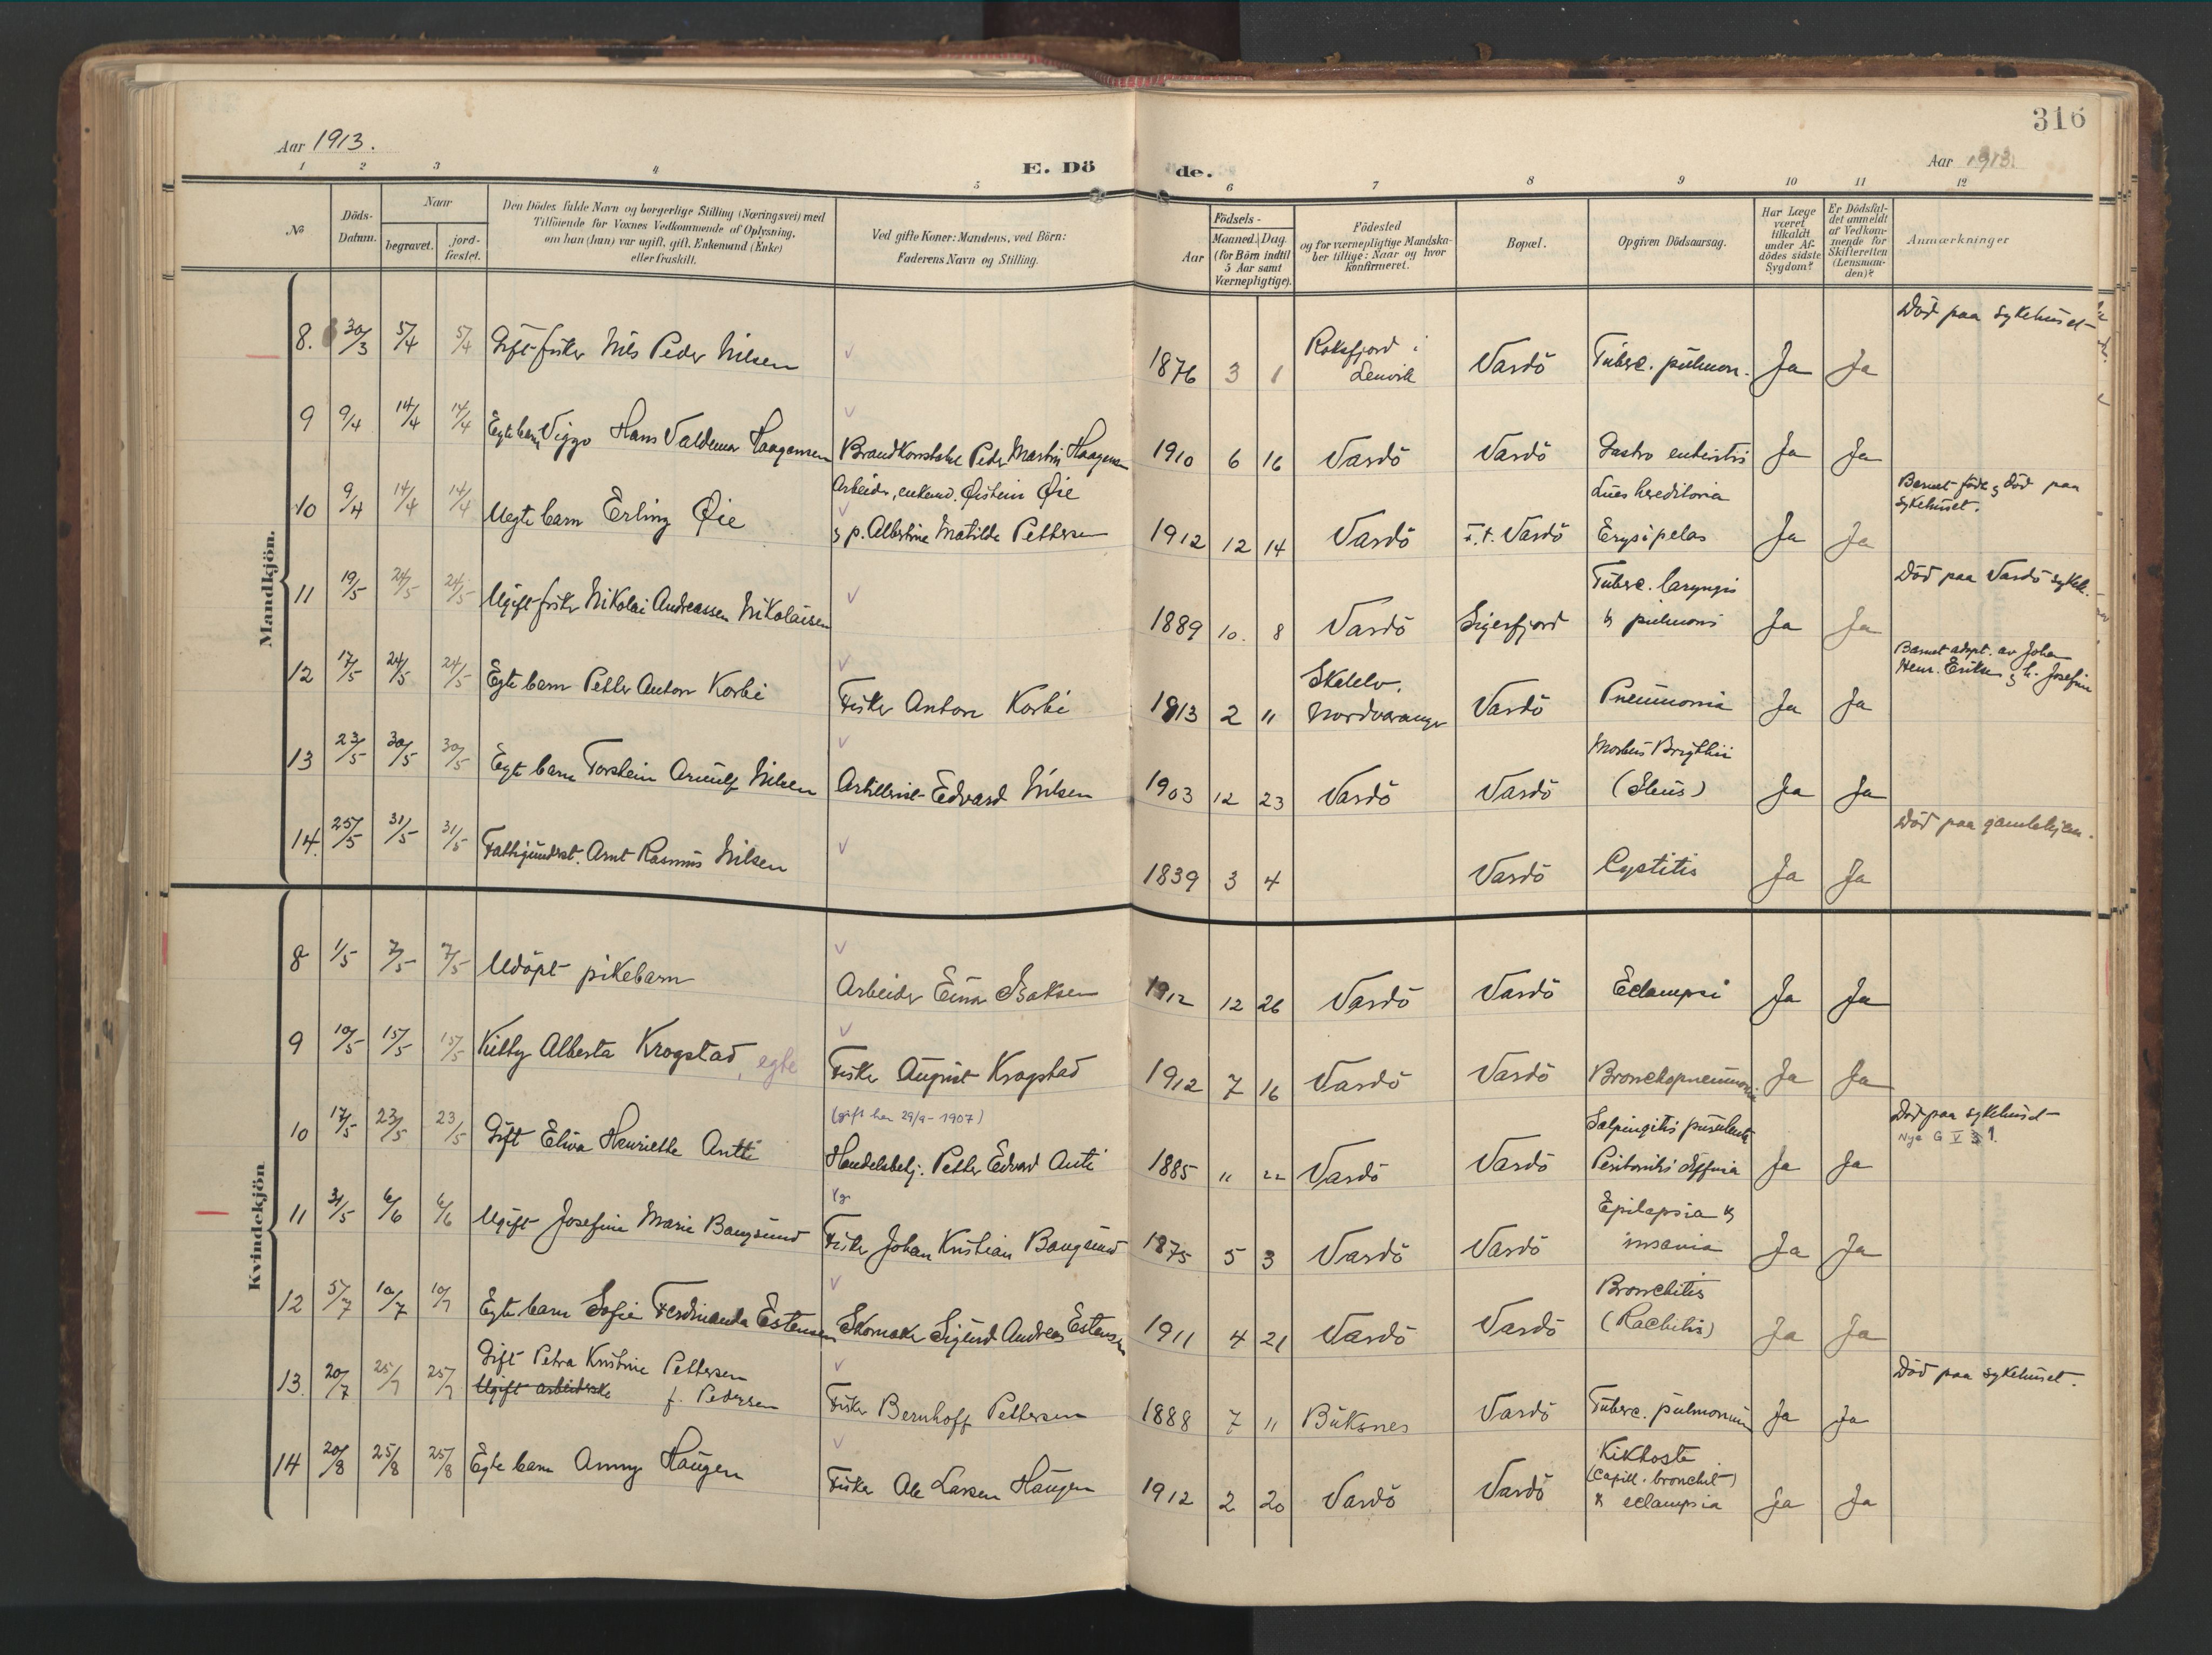 316
Aar 1913.
Aar 1913.
E. Dö de.
1 2 3 4 5 6 7 8 9 10 11 12
No
Döds-Datum.
Naar
begravet.
jord-fæstet.
Den Dödes fulde Navn og borgerlige Stilling (Næringsvei) med
Tilföiende for Voxnes Vedkommende af Oplysning,
om han (hun) var ugift, gift, Enkemand (Enke)
eller fraskilt.
Ved gifte Koner: Mandens, ved Börn:
Faderens Navn og Stilling.
Födsels-
Aar
Maaned. Dag.
(for Börn indtil
5 Aar samt
Værnepligtige).
Födested
og for værnepligtige Mandska-
ber tillige: Naar og hvor
konfirmeret.
Bopæl.
Opgiven Dödsaarsag.
Har Læge
været
tilkaldt
under Af-
dödes sidste
Sygdom?
Er Dödsfal-
det anmeldt
af Vedkom-
mende for
Skifteretten
(Lensman-
den)?
Anmærkninger
Mandkjön.
8. 30/3 5/4 5/4 Gift fisker Nils Peder Nilsen 1876 3 1 Roksfjord i Lenvik Vardö Tuberc. pulmon. Ja Ja Död paa sykehuset
9 9/4 14/4 14/4 Egte barn Viggo Hans Valdemar Haagensen Brandkonstabel Peder Martin Haagensen 1910 6 16 Vardö Vardö Gastro enteritis Ja Ja
10 9/4 14/4 14/4 Uegte barn Erling Øie Arbeider, enkem. Øistein Øie
p. Albertine Matilde Pettersen 1912 12 14 Vardö F.t. Vardö Lues hereditoria
Erysipelas Ja Ja Barnet födt & död paa
sykehuset.
11 19/5 24/5 24/5 Ugift fisker Nikolai Andreassen Nikolaisen 1889 10. 8 Vardö Sigerfjord Tuberc. laryngis
& pulmonis Ja Ja Död paa Vardö sykeh.
12 17/5 24/5 24/5 Egte barn Petter Anton Korbi Fisker Anton Korbi 1913 2 11 Skalelv.
Nordvaranger Vardö Pneumonia Ja Ja Barnet adopt. av Johan
Henr. Eriksen & h. Josefine
13 23/5 30/5 30/5 Egte barn Torstein Arnulf Nilsen Artillerist Edvard Nilsen 1903 12 23 Vardö Vardö Morbus Brigthii
(Ileus) Ja Ja
14. 25/5 31/5 31/5 Fattigunderst. Arnt Rasmus Nilsen 1839 3 4 Vardö Cystitis Ja Ja Död paa gamlehjem.
Kvindekjön
8 1/5 7/5 7/5 Udöpt pikebarn Arbeider Einar Isaksen 1912 12 26 Vardö Vardö Eclampsi Ja Ja
9 10/5 15/5 15/5 Kitty Alberta Krogstad, egte Fisker August Krogstad 1912 7 16 Vardö Vardö Bronchopneumoni Ja Ja
10 17/5 23/5 23/5 Gift Eliva Henriette Antti (gift her 29/9-1907)
Handelsbetj. Petter Edvard Anti 1885 11 22 Vardö Vardö Salpingitis purulenta
Peritonitis diffusa Ja Ja Död paa sykehuset
Nye G V 1.
11 31/5 6/6 6/6 Ugift Josefine Marie Bangsund Fisker Johan Kristian Bangsund 1875 5 3 Vardö Vardö Epilepsia &
insania Ja Ja
12 5/7 10/7 10/7 Egte barn Sofie Ferdinanda Estensen Skomaker Sigurd Andreas Estensen 1911 4 21 Vardö Vardö Bronchitis
(Rachitis) Ja Ja
13. 20/7 25/7 25/7 Gift Petra Kristine Pettersen
Ugift arbeiderske f. Pedersen Fisker Bernhoff Pettersen 1888 7 11 Buksnes Vardö Tuberc. pulmonum Ja Ja Död paa sykehuset.
14 20/8 25/8 25/8 Egte barn Anny Haugen Fisker Ole Larsen Haugen 1912 2 20 Vardö Vardö Kikhoste
(capill. bronchit)
& eclampsia Ja Ja